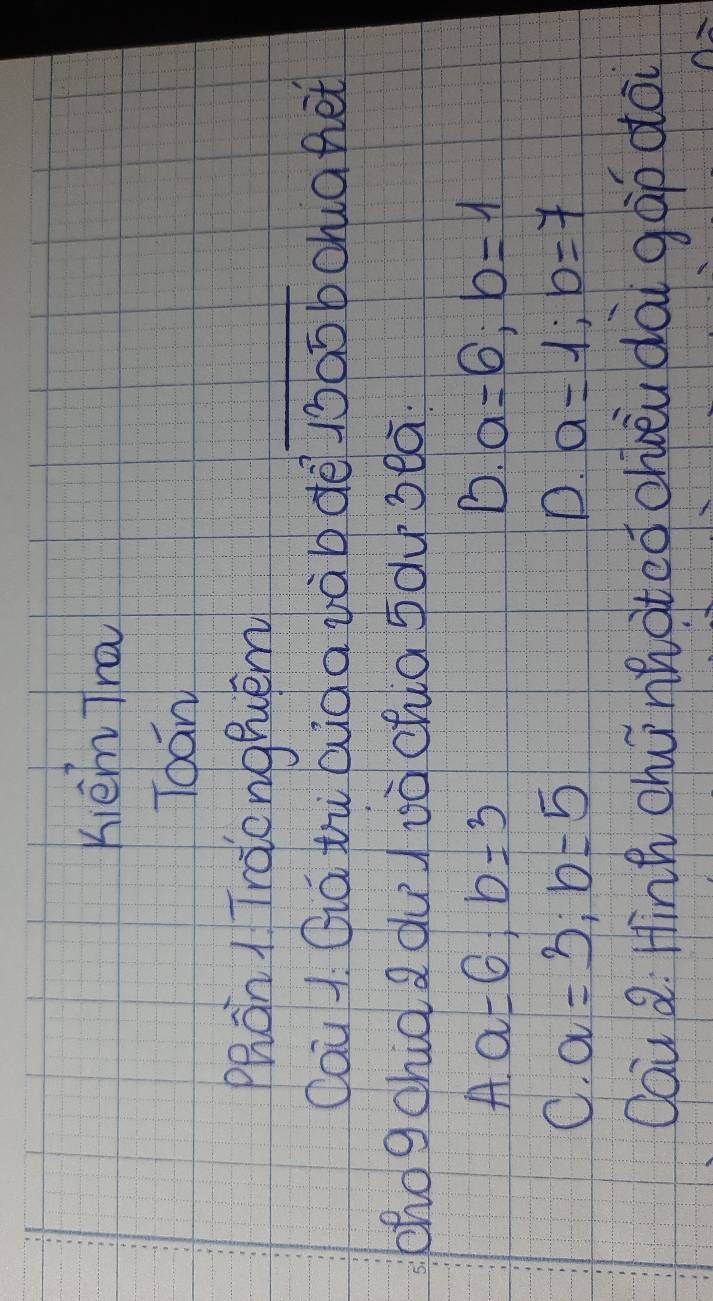 Kiểm Tra
Toán
Phần 1: Trắc nghiệm
Câu 1: Giá trị của a và b để 13a5b chia hết
cho 9 chia 2 dư 1 và chia 5 dư 3 là:
A. a=6; b=3 B. a=6; b=1
C. a=3; b=5 D. a=1; b=7
Câu 2: Hình chữ nhật có chiều dài gấp đôi